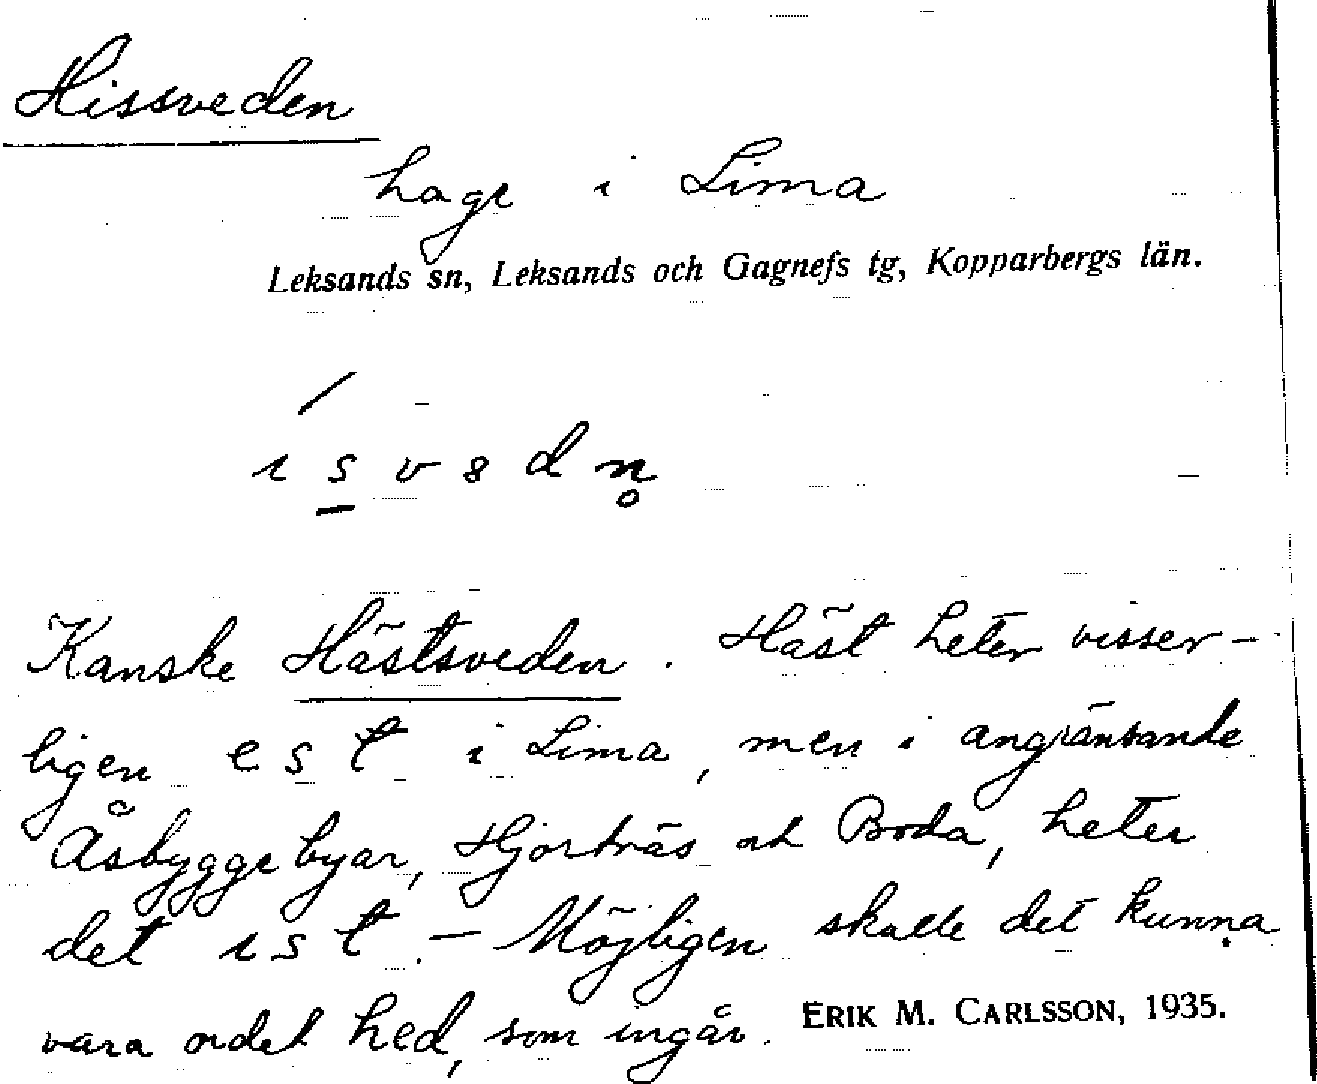 Hissveden
hage i Lima
Leksands sn, Leksands och Gagnefs tg, Kopparbergs län.
i s v e d n
Kanske Hästsveden. Häst heter visser-
ligen e s t i Lima, men i angränsande
Åsbyggebyar, Hjortnäs och Boda, heter
det i s t. – Möjligen skulle det kunna
vara ordet hed, som ingår. ERIK M. CARLSSON, 1935.